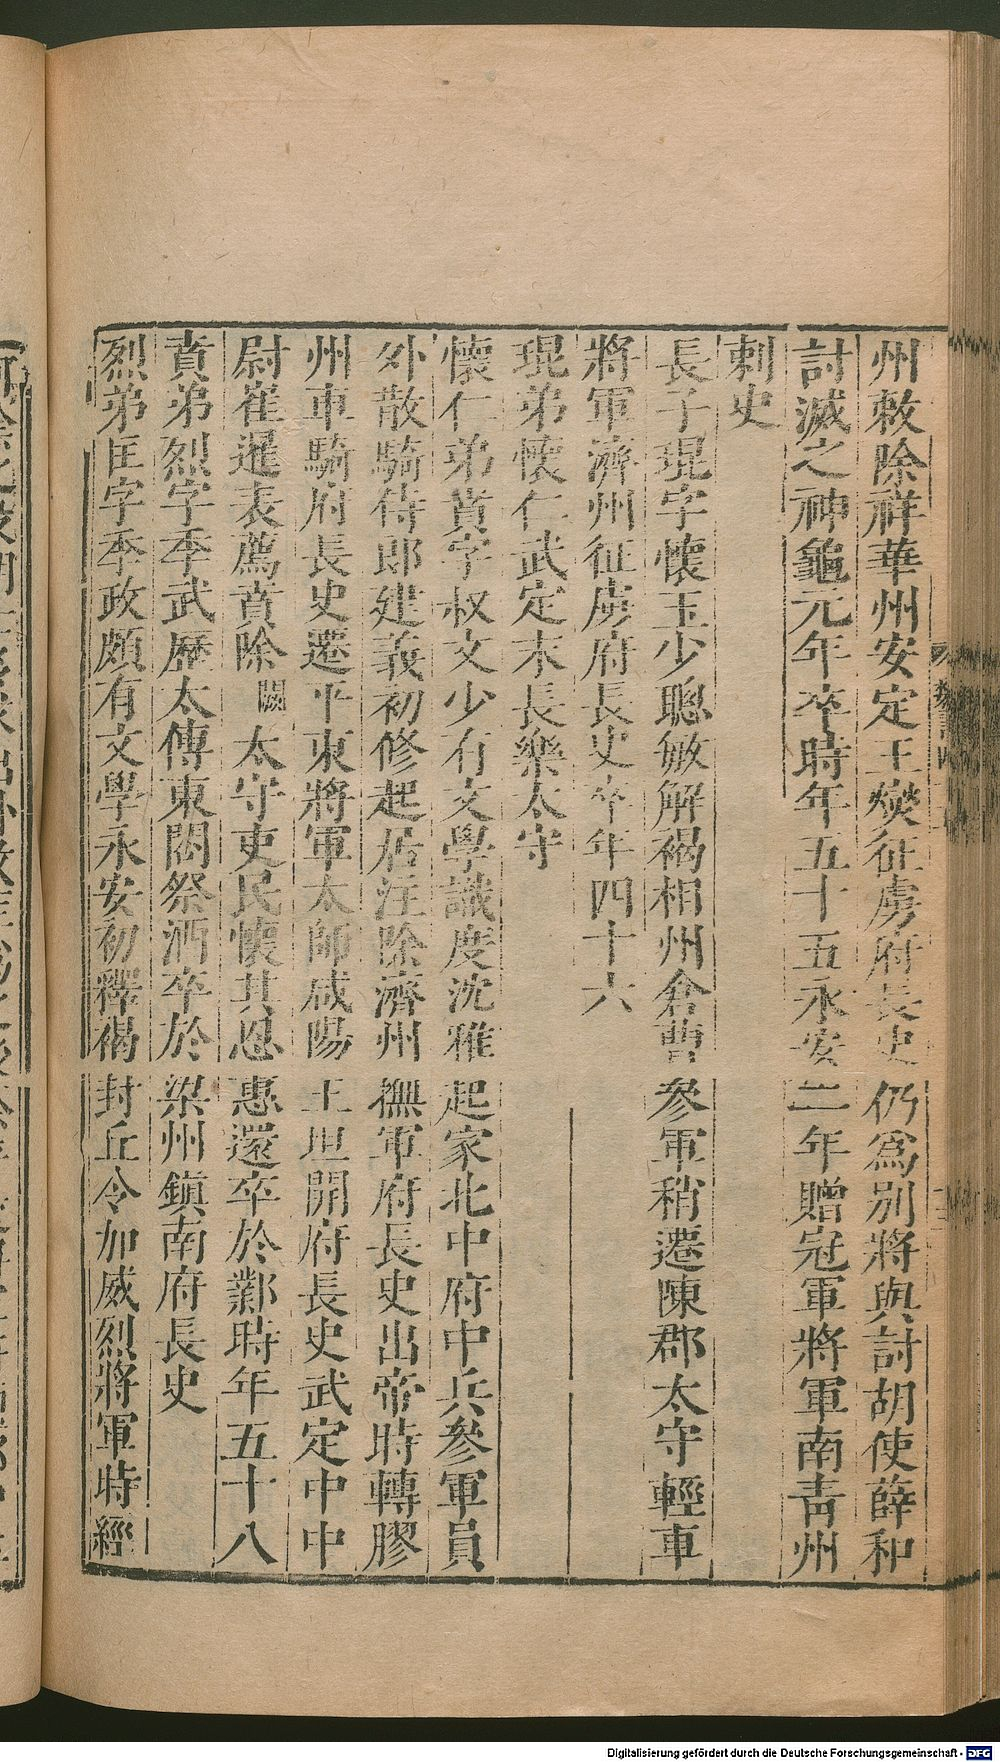 州敕除祥華州安定王燮征虜府長史仍爲別將與討胡使薛和
討滅之神龜元年卒時年五十五永安二年贈冠軍將軍南靑州
刺史
長子琨字懷玉少聰敏解褐相州倉曹參軍稍遷陳郡太守輕車
將軍濟州征虜府長史卒年四十六
琨弟懷仁武定末長樂太守
懷仁弟賁字叔文少有文學識度沈雅起家北中府中兵參軍員
外散騎侍郎建義初修起居注除濟州撫軍府長史出帝時轉膠
州車騎府長史遷平東將軍太師咸陽王坦開府長史武定中中
尉崔暹表薦賁除闕太守吏民懷其恩惠還卒於鄴時年五十八
賁弟烈字季武歷太傅東閤祭酒卒於梁州鎭南府長史
烈弟匡字季政頗有文學永安初釋褐封丘令加威烈將軍時經
Digitalisierung gefördert durch die Deutsche Forschungsgemeinschaft - DFG